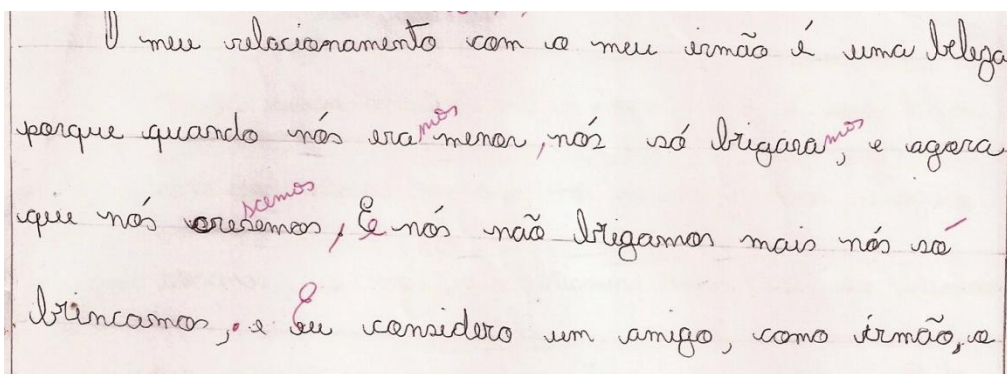 O meu relacionamento com o meu irmão é uma beleza
porque quando nós era mos menor, nós só brigara mos, e agora
que nós cresemos scemos, E nós não brigamos mais nós só
brincamos, . e Eu considero um amigo, como irmão, o